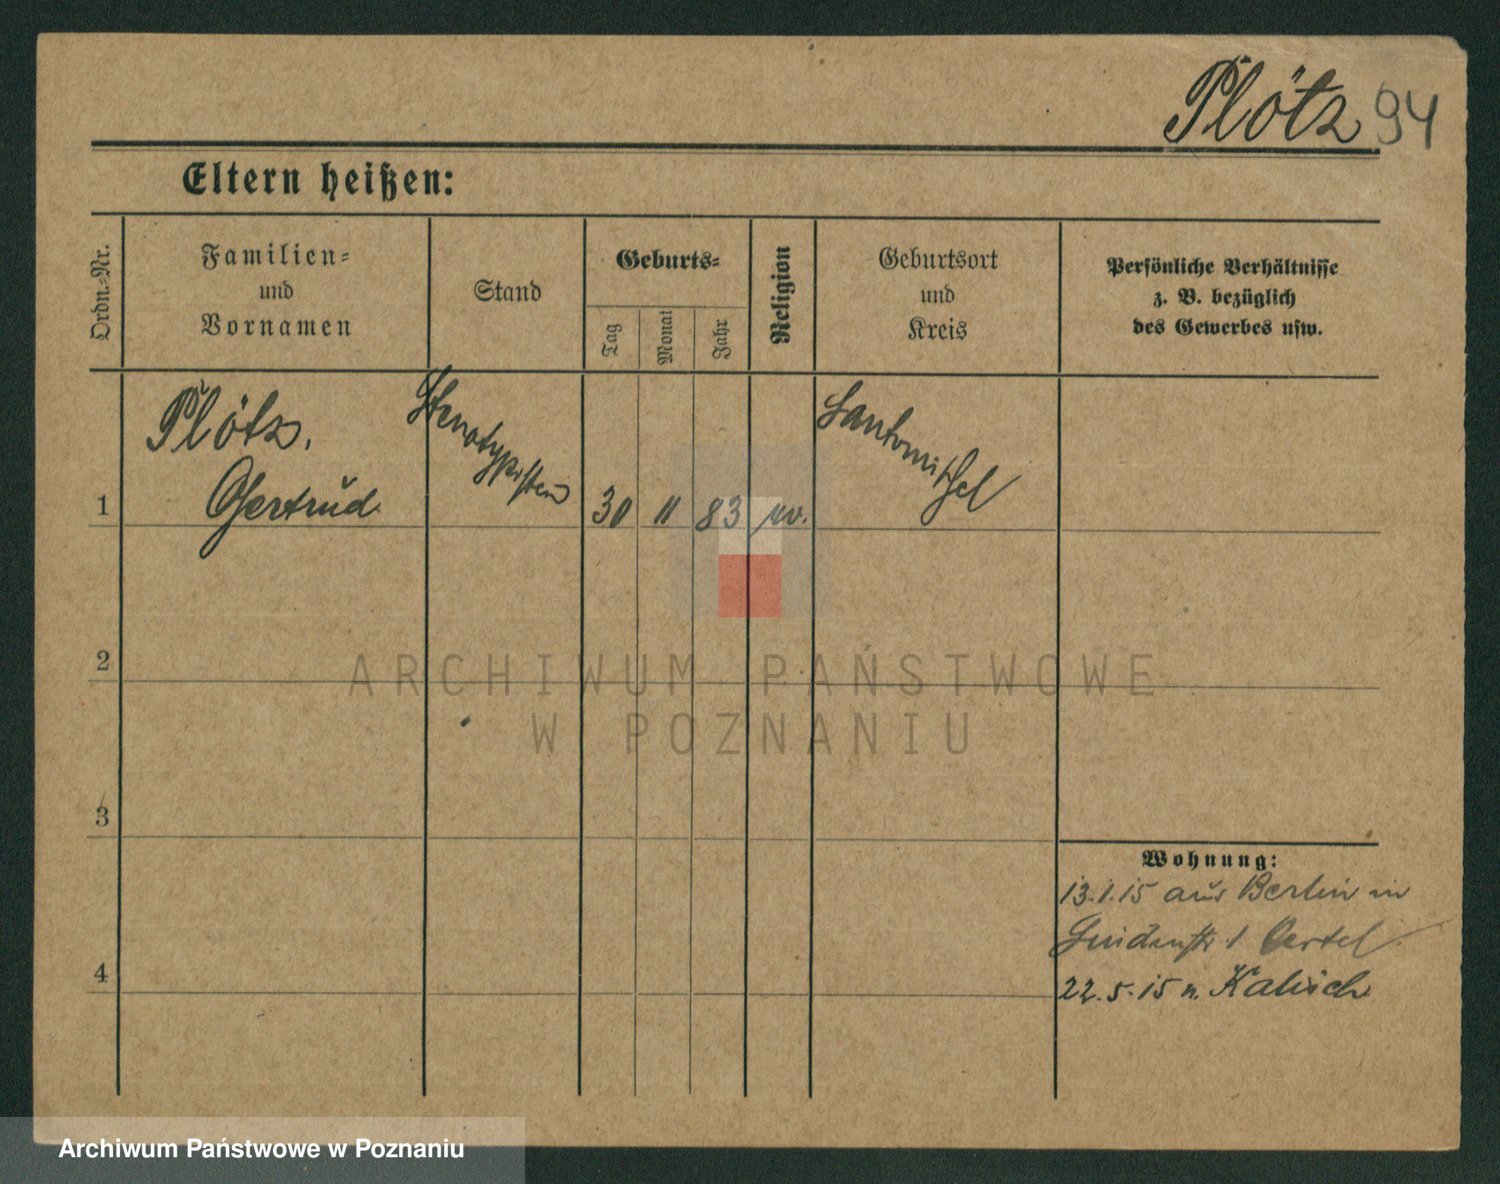 Plötz 94
Eltern heißen:
Ordn.-Nr.
Familien-
und
Vornamen
Stand
Geburts-
Tag
Monat
Jahr
Religion
Geburtsort
und
Kreis
Persönliche Verhältnisse
z. B. bezüglich
des Gewerbes usw.
1
Plötz,
Gertrud
Stenotypistin
30 11 83 ev.
Santomischel
2
3
4
Wohnung:
13.1.15 aus Berlin in
1 Oertel
22.5.15 n. Kalisch
ARCHIWUM PAŃSTWOWE
W POZNANIU
Archiwum Państwowe w Poznaniu